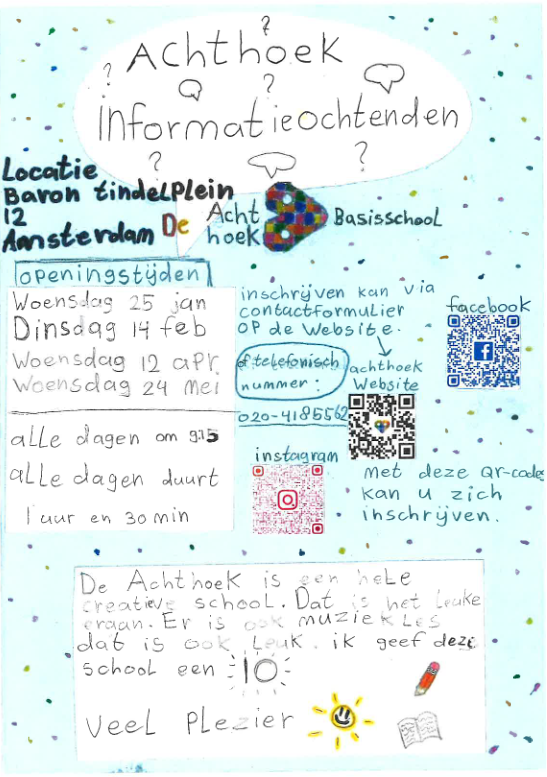 Achthoek
Informatieochtenden
Locatie
Baron tindelplein
12
Amsterdam
De Acht
hoek
Basisschool
openingstijden
Woensdag 25 jan
Dinsdag 14 feb
Woensdag 12 apr
Woensdag 24 mei
alle dagen om 9:15
alle dagen duurt
1 uur en 30 min
inschrijven kan via
contactformulier
op de website.
of telefonisch
nummer:
020-4185562
achthoek
Website
facebook
instagram
met deze QR-codes
kan u zich
inschrijven.
De Achthoek is een hele
creatieve school. Dat is het leuke
eraan. Er is ook muziekles
dat is ook leuk. ik geef deze
school een 10
Veel plezier